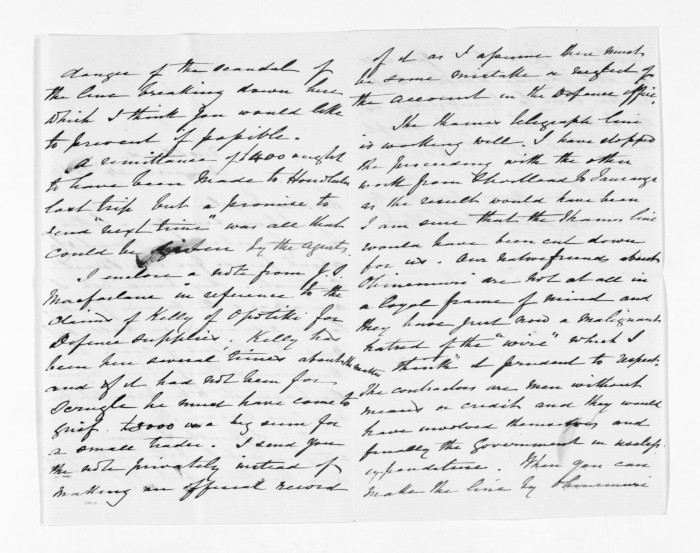 danger of the scandal of
the line breaking down here
which I think you would like
to prevent if possible.
A remittance of £400 ought
to have been made to Honolulu
last trip but a promise to
send "next time" was all that
could be given by the agents.
I enclose a note from J.S.
Macfarlane in reference to the
claims of Kelly of Opotiki for
Defence supplies. Kelly has
been here several times about the matter
and if it had not been for
he must have come to
grief. £3000 is a big sum for
a small trader. I send you
the note privately instead of
making an official record
of it as I assume there must
be some mistake or neglect of
the account in the Defence office.
The Thames telegraph line
is working well. I have stopped
the proceeding with the other
work from Shortland to Tauranga
as the result would have been
I am sure that the Thames line
would have been cut down
for us. Our native friends about
Ohinemuri are not at all in
a loyal frame of mind and
they have just now a malignant
hatred of the "wire" which I
think it prudent to respect.
The contractors are men without
means or credit and they would
have involved themselves and
finally the Government in useless
expenditure. When you can
make the line by Ohinemuri